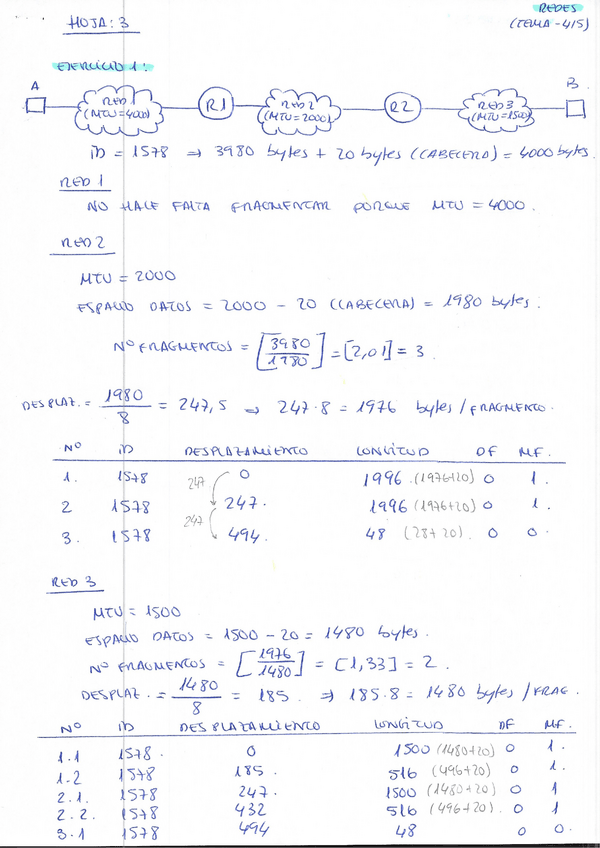 HOJA: 3
REDES
(TEMA-4/5)
EJERCICIO 1:
A
RED 1
(MTU=4000)
R1
RED 2
(MTU=2000)
R2
RED 3
(MTU=1500)
B.
ID = 1578 ⇒ 3980 bytes + 20 bytes (CABECERA) = 4000 bytes.
RED 1
NO HACE FALTA FRAGMENTAR PORQUE MTU = 4000.
RED 2
MTU = 2000
ESPACIO DATOS = 2000 - 20 (CABECERA) = 1980 bytes.
Nº FRAGMENTOS = [3980/1980] = [2,01] = 3.
DESPLAZ. = 1980/8 = 247,5 ⇒ 247·8 = 1976 bytes/FRAGMENTO.
Nº ID DESPLAZAMIENTO LONGITUD DF MF.
1. 1578 0 1996 (1976+20) 0 1.
247
2 1578 247. 1996 (1976+20) 0 1.
247
3. 1578 494. 48 (28+20). 0 0.
RED 3
MTU = 1500
ESPACIO DATOS = 1500 - 20 = 1480 bytes.
Nº FRAGMENTOS = [1976/1480] = [1,33] = 2.
DESPLAZ. = 1480/8 = 185. ⇒ 185·8 = 1480 bytes/FRAG.
Nº ID DESPLAZAMIENTO LONGITUD DF MF.
1.1 1578. 0 1500 (1480+20) 0 1.
1.2 1578 185. 516 (496+20) 0 1.
2.1. 1578 247. 1500 (1480+20) 0 1
2.2. 1578 432 516 (496+20). 0 1
3.1 1578 494 48 0 0.